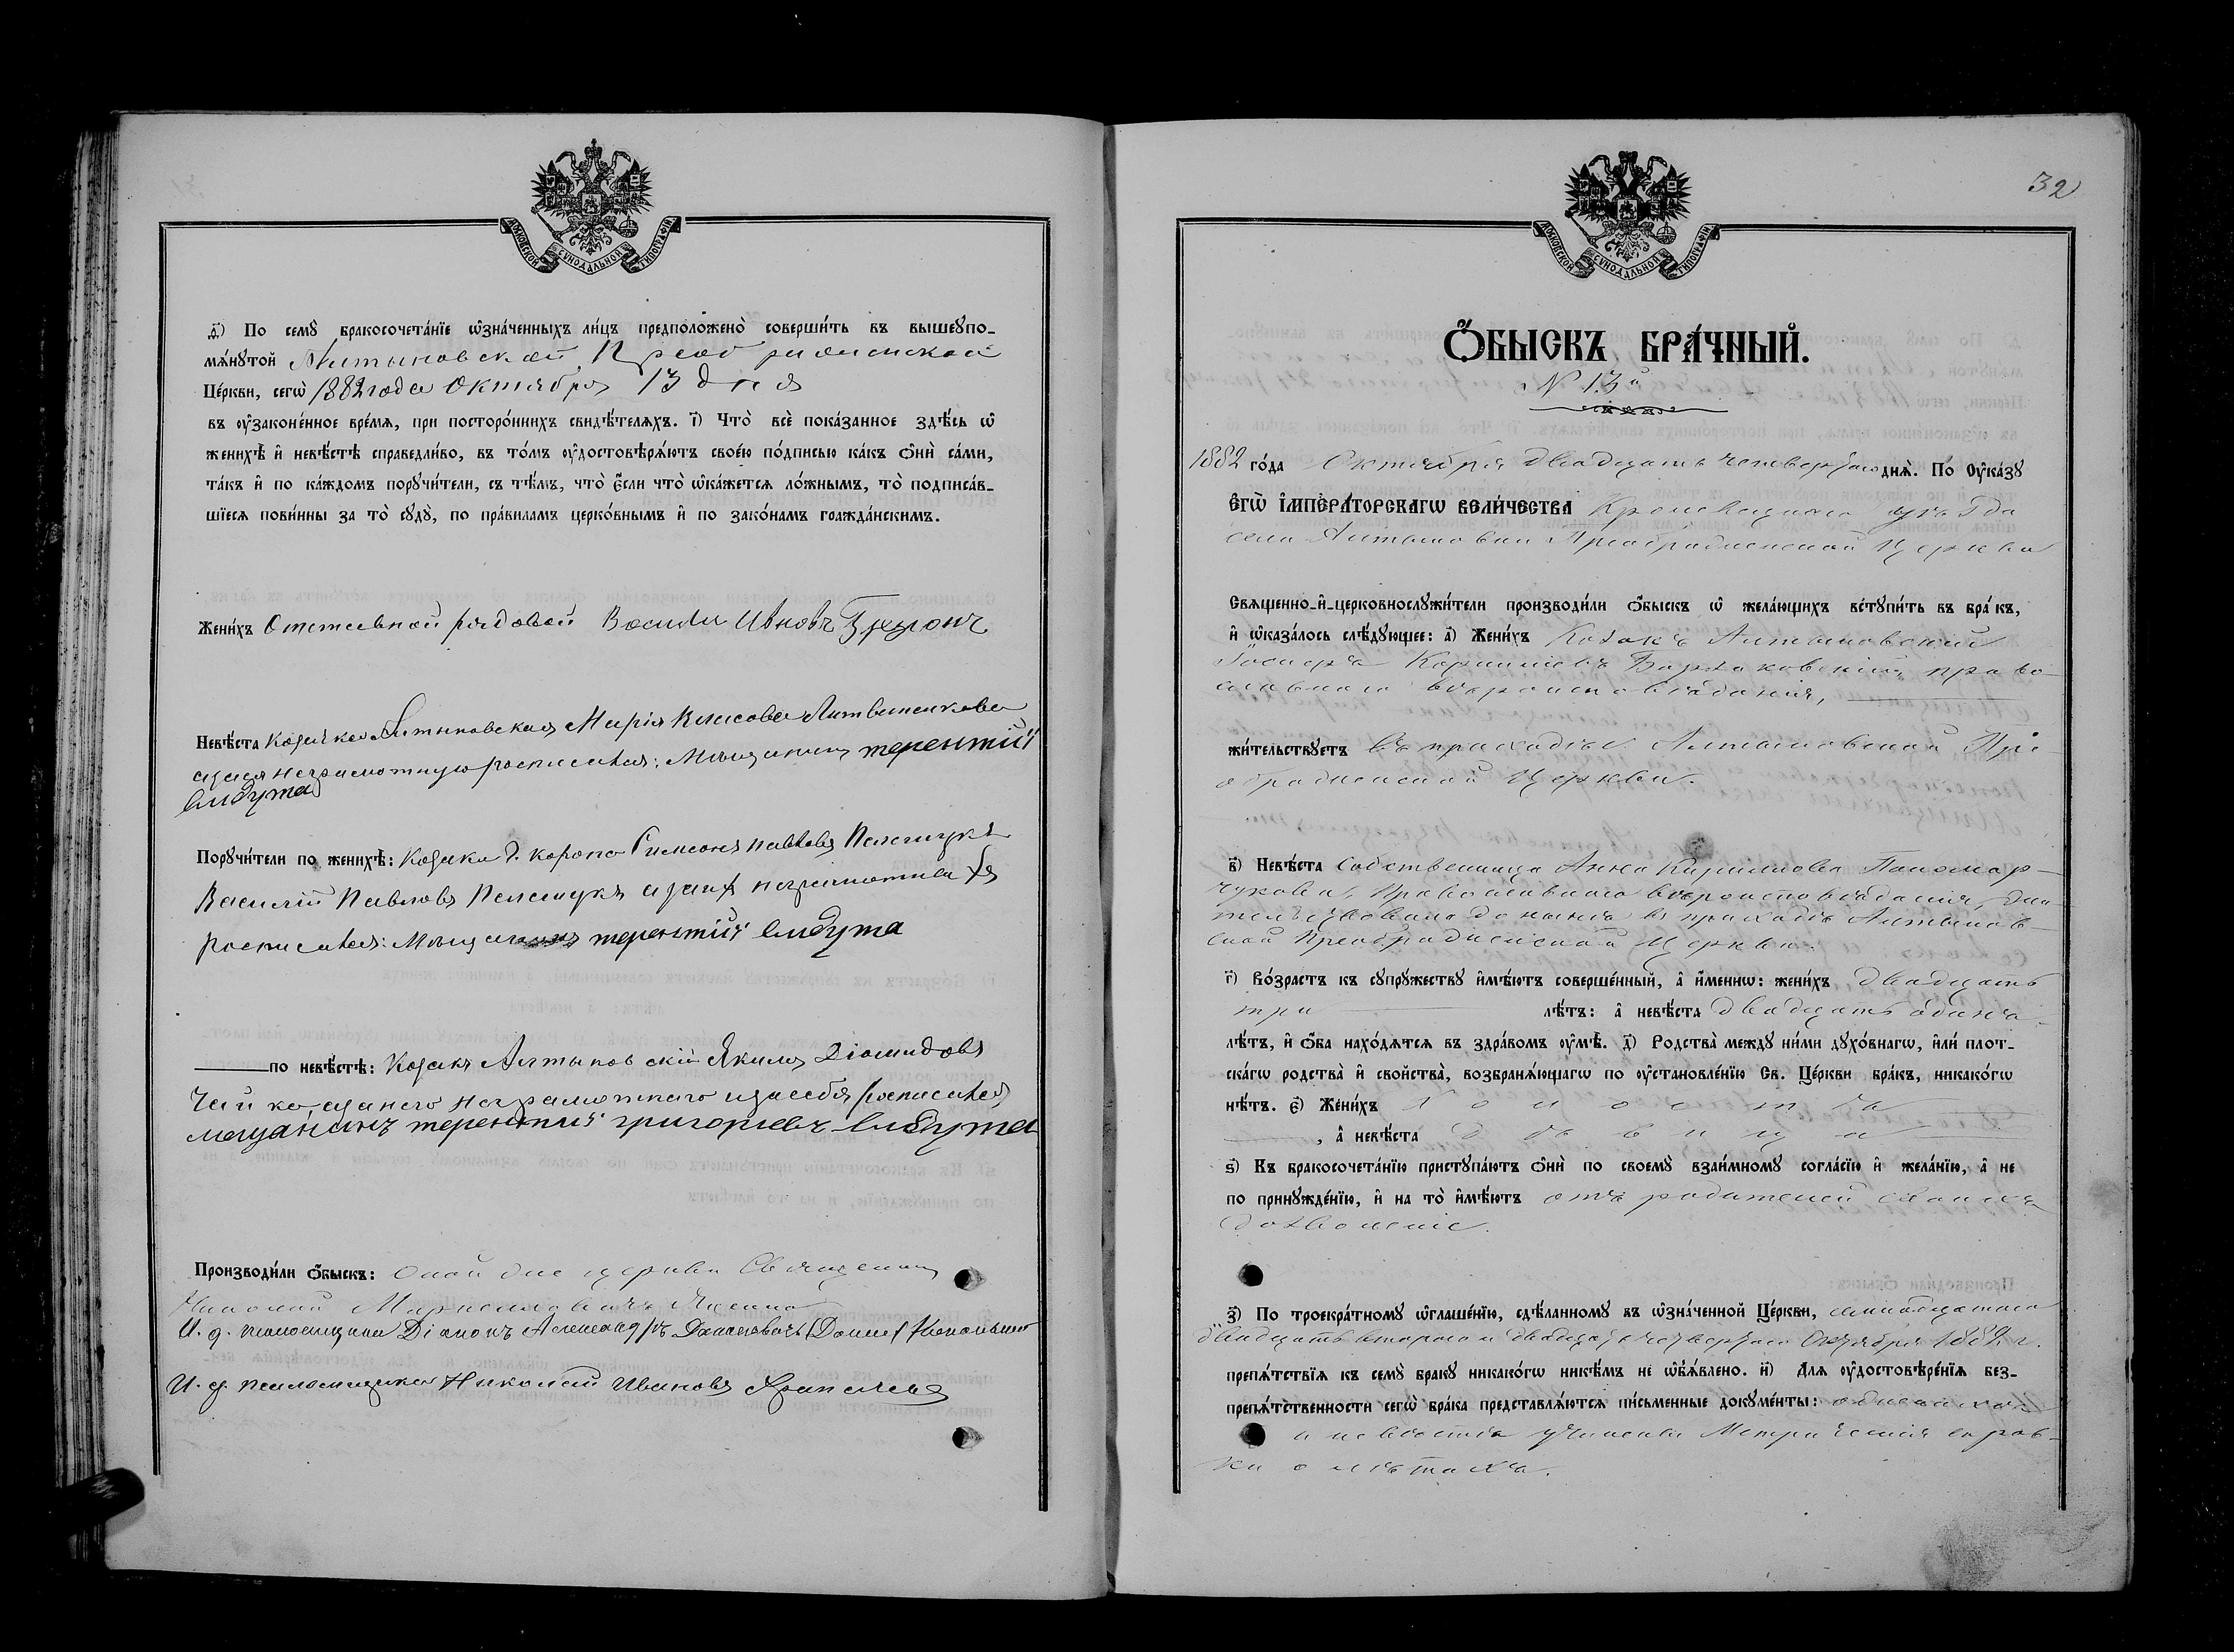 МОСКОВСКОЙ СѴНОДАЛЬНОЙ ТИПОГРАФІИ
д҃) По семꙋ̀ бракосочета́нїе ѡ҆зна́ченныхъ ли́цъ предположено̀ соверши́ть въ вышеꙋпо-
мѧ́нꙋтой Алтыновской Преображенской
Це́ркви, сегѡ̀ 1882 года Октября 13 дня
въ оу҆зако́ненное вре́мѧ, при посторо́ннихъ свидѣ́телѧхъ. і҃) Что̀ всѐ пока́занное здѣ́сь ѡ҆
женихѣ̀ и҆ невѣ́стѣ справедли́во, въ то́мъ оу҆достовѣрѧ́ютъ свое́ю по́дписью ка́къ ѻ҆нѝ са́ми,
та́къ и҆ по ка́ждомъ порꙋчи́тели, съ тѣ́мъ, что̀ є҆́сли что̀ ѡ҆ка́жетсѧ ло́жнымъ, то̀ подписа́в-
шїесѧ пови́нны за то̀ сꙋдꙋ̀, по пра́виламъ церко́внымъ и҆ по зако́намъ гражда́нскимъ.
Жени́хъ Отставной рядовой Василій Ивновъ
Невѣ́ста Козачка Алтыновская Марія Власова Литвиненкова
а за нея неграмотную росписался: Мещанинъ терентій
Порꙋчи́тели по женихѣ̀: Козаки М. Коропа Симеонъ Павловъ Пелешукъ
Василій Павловъ Пелешукъ а за ихъ неграмотныхъ
росписался: Мещанинъ терентій
по невѣ́стѣ: Козакъ Алтыновскій Якимъ Діомидовъ
Чайко, а за него неграмотного и за себя росписался
мещанинъ терентий григориевъ
Производи́ли ѻ҆́быскъ: Оной же церкви Священникъ
Николай
И. д. псаломщика Діаконъ Александръ
И. д. псаломщика Николай Ивановъ
32
МОСКОВСКОЙ СѴНОДАЛЬНОЙ ТИПОГРАФІИ
Ѻ҆́БЫСКЪ БРА́ЧНЫЙ.
№ 13й
1882 го́да Октября двадцать четвертаго днѧ̀. По Оу҆ка́зꙋ
Є҆гѡ̀ І҆мпера́торскагѡ Вели́чества Кролевецкаго уѣзда
села Алтыновки Преображенской Церкви
Свѧщенно-и҆-церковнослꙋжи́тели производи́ли ѻ҆́быскъ ѡ҆ жела́ющихъ встꙋпи́ть въ бра́къ,
и҆ ѡ҆каза́лось слѣ́дꙋющее: а҃) Жени́хъ Козакъ Алтыновский
Корниліевъ Баржаковскій, право-
славнаго вѣроисповѣданія,
жи́тельствꙋетъ въ приходѣ Алтыновской Пре
ображенской Церкви.
в҃) Невѣ́ста Собственница Анна Кириллова Пономар-
чукова, Православнаго вѣроисповѣданія, жи-
тельствовала до нынѣ въ приходѣ Алтынов-
ской Преображенской Церкви.
г҃) Во́зрастъ къ сꙋпрꙋ́жествꙋ и҆мѣ́ютъ соверше́нный, а҆ и҆́меннѡ: жени́хъ двадцать
три лѣ́тъ: а҆ невѣ́ста двадцать одинъ
лѣ́тъ, и҆ ѻ҆́ба нахо́дѧтсѧ въ здра́вомъ оу҆мѣ̀. д҃) Родства̀ междꙋ ни́ми дꙋхо́внагѡ, и҆лѝ плот-
ска́гѡ родства̀ и҆ сво́йства̀, возбранѧ́ющагѡ по оу҆становле́нїю Св. Це́ркви бра́къ, никако́гѡ
нѣ́тъ. є҃) Жени́хъ холостъ
, а҆ невѣ́ста дѣвица
ѕ҃) Къ бракосочета́нїю пристꙋпа́ютъ ѻ҆нѝ по своемꙋ̀ взаи́мномꙋ согла́сїю и҆ жела́нїю, а҆ не
по принꙋжде́нїю, и҆ на то̀ и҆мѣ́ютъ отъ родителей своихъ
дозволеніе.
з҃) По троекра́тномꙋ ѡ҆глаше́нїю, сдѣ́ланномꙋ въ ѡ҆зна́ченной Це́ркви, семнадцатаго
двадцать втораго и двадцать четвертаго Октября 1882 г.
препѧ́тствїѧ къ семꙋ̀ бра́кꙋ никако́гѡ никѣ́мъ не ѡ҆б̾ѧ́влено. и҃) Длѧ оу҆достовѣре́нїѧ без-
препѧ́тственности сегѡ̀ бра́ка представлѧ́ютсѧ пи́сьменные докꙋме́нты: о женихѣ
и невѣстѣ учинены Метрическія справ-
ки о лѣтахъ.